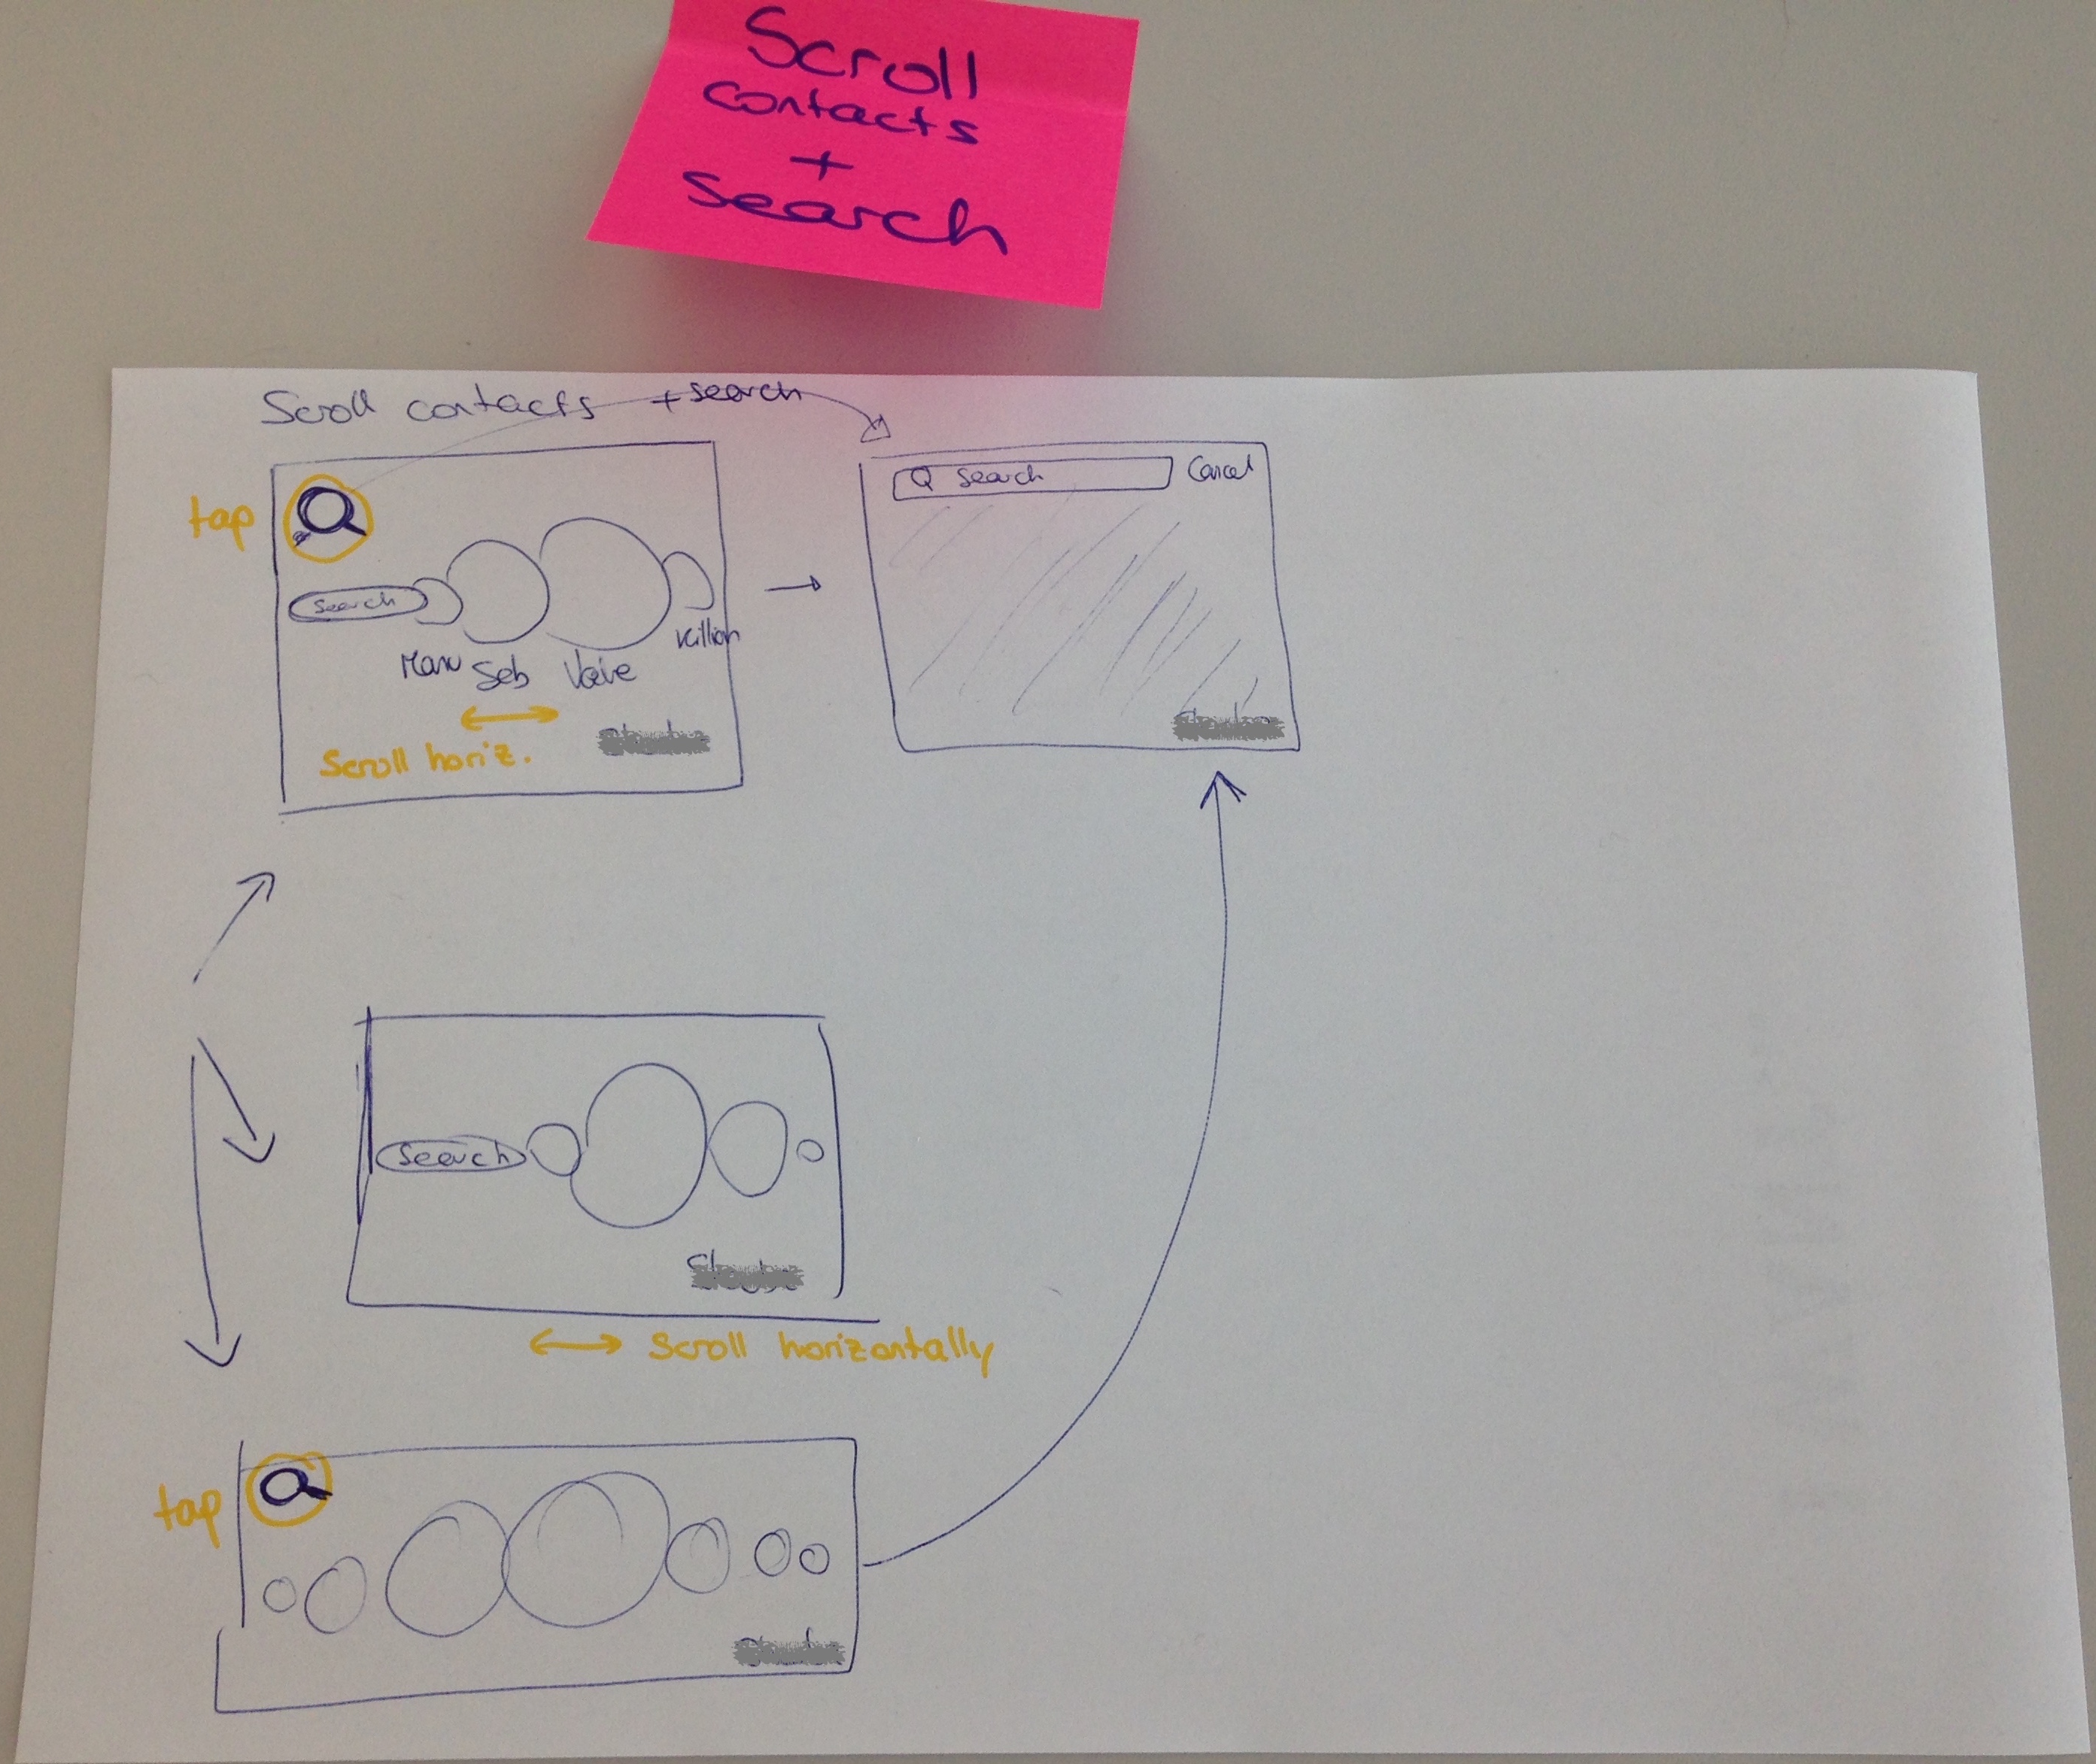 Scroll
contacts
+
Search
Scroll contacts + search
tap
search
Manu Seb Vaive Killian
Scroll horiz.
Search Cancel
Search
Scroll horizontally
tap